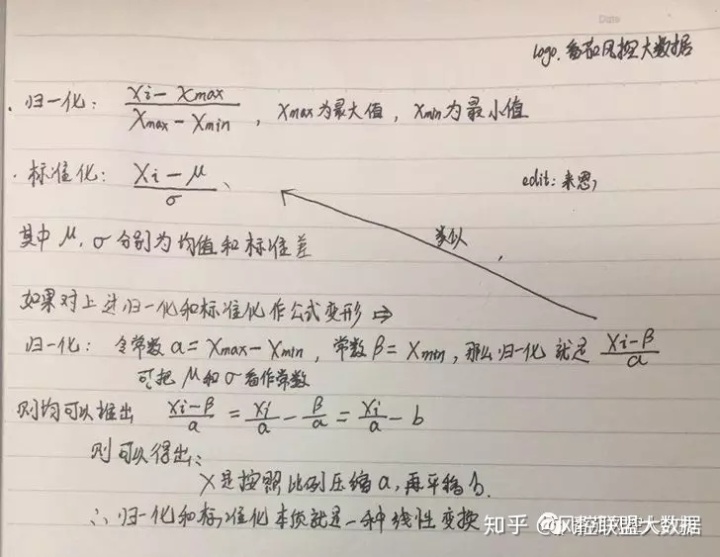 Date
logo.番茄风控大数据
· 归一化: (Xi − Xmax)/(Xmax − Xmin), Xmax为最大值, Xmin为最小值
· 标准化: (Xi − μ)/σ、
edit: 来恩
其中 μ, σ 分别为均值和标准差
类似
如果对上述归一化和标准化作公式变形 ⇒
归一化: 令常数 α = Xmax − Xmin, 常数 β = Xmin, 那么归一化 就是 (Xi − β)/α
可把 μ和σ看作常数
则均可以推出 (Xi − β)/α = Xi/α − β/α = Xi/α − b
则可以得出:
X是按照比例压缩α, 再平移b.
∴ 归一化和标准化本质就是一种线性变换
知乎 @风控联盟大数据